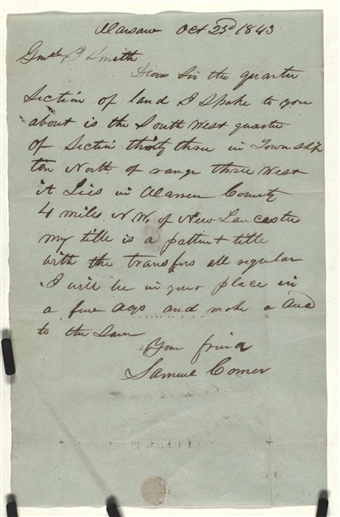 Warsaw Oct 23d 1843
Smith
Dear Sir the quarter
Section of land I Spoke to you
about is the South West quarter
of Section thirty three in Township
ten North of range three West
it Lies in Warren County
4 miles N W. of New Lancaster
my title is a pattent title
with the transfers all regular
I will be in your place in
a few days and make a deed
to the Same
Your friend
Samuel Comer